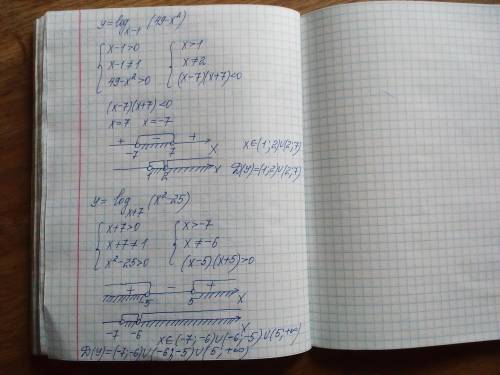 y=log_{x-1} (49-x²)
{ x-1>0   { x>1
x-1≠1   x≠2
49-x²>0   (x-7)(x+7)<0
(x-7)(x+7)<0
x=7   x=-7
+ - +
-7 7 x   x∈(1;2)∪(2;7)
1 2 x   D(y)=(1;2)∪(2;7)
y=log_{x+7} (x²-25)
{ x+7>0   { x>-7
x+7≠1   x≠-6
x²-25>0   (x-5)(x+5)>0
+ - +
-5 5 x
-7 -6 x
x∈(-7;-6)∪(-6;-5)∪(5;+∞)
D(y)=(-7;-6)∪(-6;-5)∪(5;+∞)